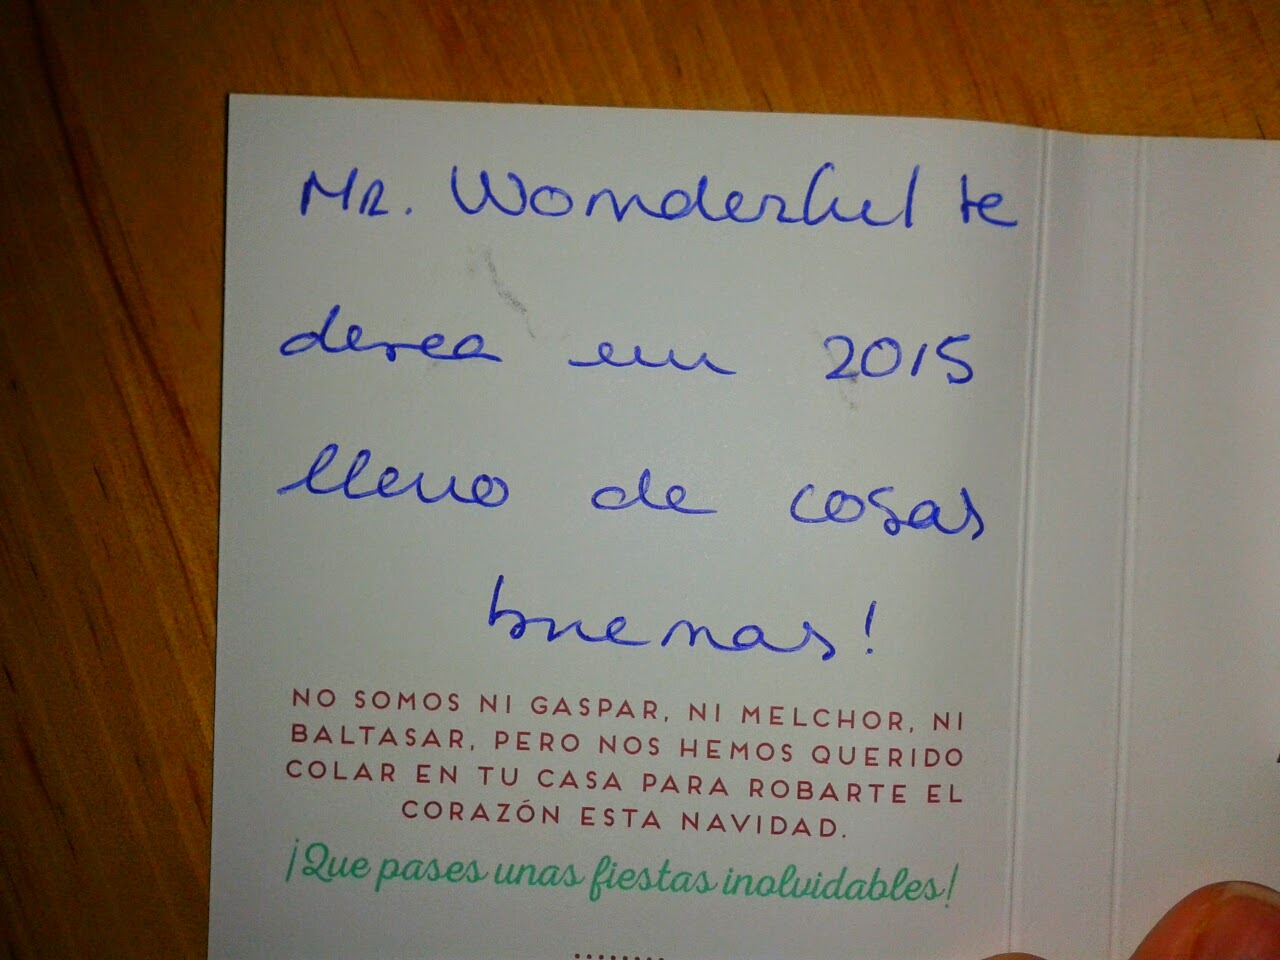 Mr. Wonderful te
desea un 2015
lleno de cosas
buenas!
NO SOMOS NI GASPAR, NI MELCHOR, NI
BALTASAR, PERO NOS HEMOS QUERIDO
COLAR EN TU CASA PARA ROBARTE EL
CORAZÓN ESTA NAVIDAD.
¡Que pases unas fiestas inolvidables!